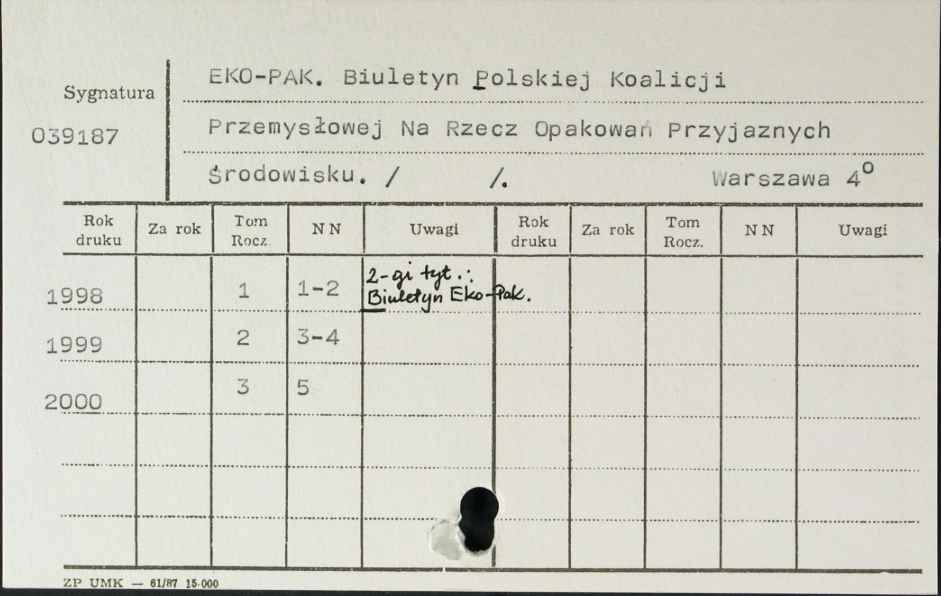 EKO-PAK. Biuletyn Polskiej Koalicji
Sygnatura
039187
Przemysłowej Na Rzecz Opakowań Przyjaznych
Środowisku. / /. Warszawa 4°
Rok druku Za rok Tom Rocz. N N Uwagi Rok druku Za rok Tom Rocz. N N Uwagi
1998 1 1-2 2-gi tyt.:
Biuletyn Eko-Pak.
1999 2 3-4
2000 3 5
ZP UMK — 61/87 15.000